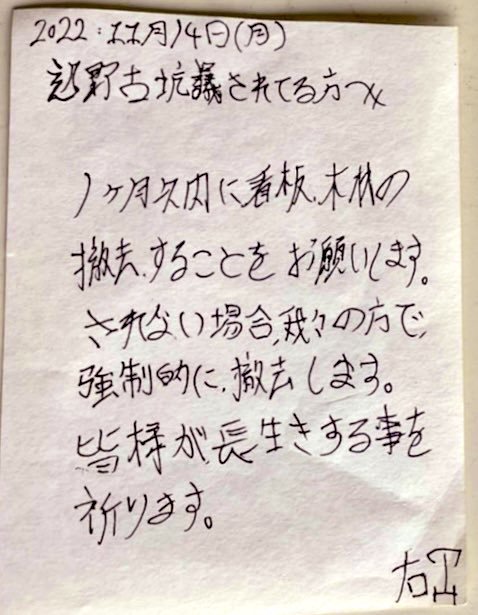 2022.11月14日(月)
辺野古坑議されてる方へ
1ヶ月以内に看板、木材の
撤去、することをお願いします。
されない場合、我々の方で、
強制的に、撤去します。
皆様が、長生きする事を
祈ります。